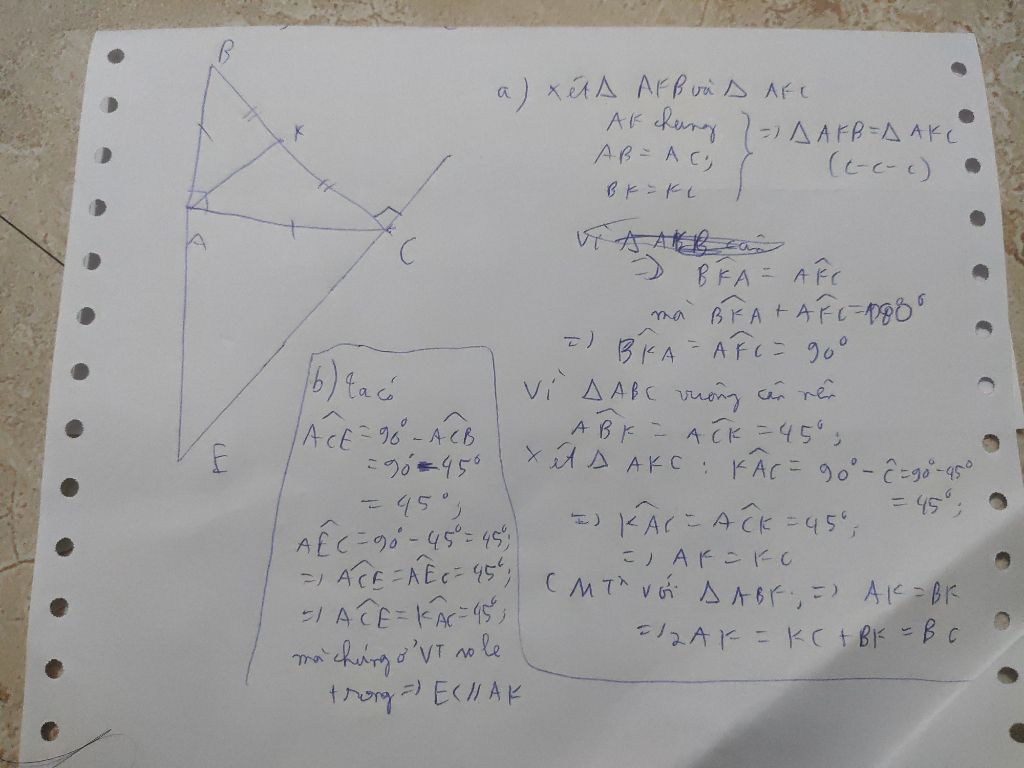 B
K
A
C
E
a) xét Δ AKB và Δ AKC
AK chung
AB = AC;
BK = KC
=) Δ AKB = Δ AKC
(c-c-c)
=) BK̂A = AK̂C
mà BK̂A + AK̂C = 180°
=) BK̂A = AK̂C = 90°
Vì Δ ABC vuông cân nên
AB̂K = AĈK = 45°;
Xét Δ AKC : KÂC = 90° - Ĉ = 90° - 45°
= 45°;
=) KÂC = AĈK = 45°;
=) AK = KC
CMT² với Δ ABK; =) AK = BK
=) 2AK = KC + BK = BC
b) Ta có
AĈE = 90° - AĈB
= 90° - 45°
= 45°;
AÊC = 90° - 45° = 45°;
=) AĈE = AÊC = 45°;
=) AĈE = KÂC = 45°;
mà chúng ở VT so le
trong =) EC // AK